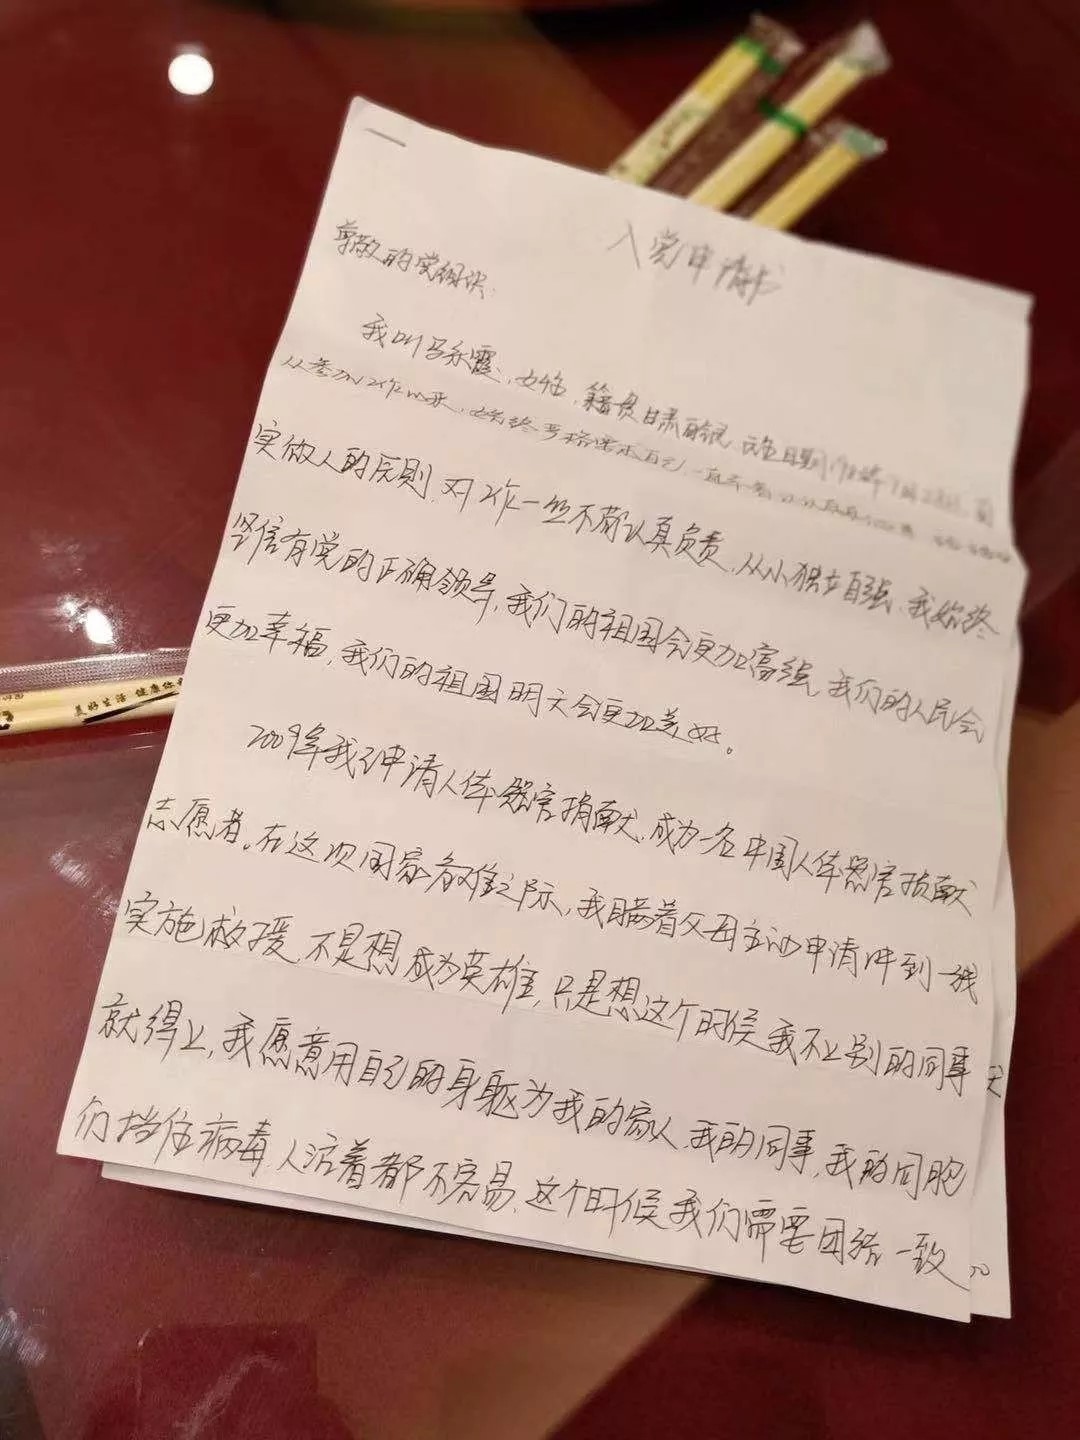 入党申请书
尊敬的党组织:
我叫马永霞,女,籍贯甘肃
从参加工作以来,始终严格要求自己,一直
实做人的原则,对工作一丝不苟认真负责,从小独立自强,我始终
坚信有党的正确领导,我们的祖国会更加富强,我们的人民会
更加幸福,我们的祖国明天会更加美好。
2009年我已申请人体器官捐献,成为一名中国人体器官捐献
志愿者。在这次国家危难之际,我瞒着父母主动申请冲到一线
实施救援,不是想成为英雄,只是想这个时候我不上别的同事也
就得上,我愿意用自己的身躯为我的家人,我的同事,我的同胞
们挡住病毒,人活着都不容易,这个时候我们需要团结一致。
美好生活 健康你